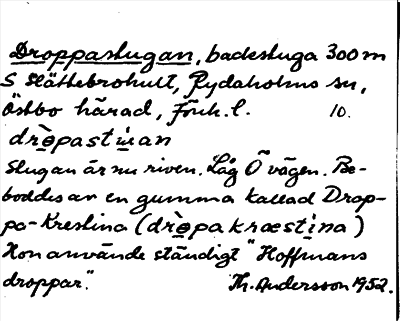 Droppastugan, backstuga 300 m
S Slättebrohult, Rydaholms sn,
Östbo härad, Jönk. l. 10.
drɵ̀pastu̇̀an
Stugan är nu riven. Låg Ö vägen. Be-
boddes av en gumma kallad Drop-
pa-Krestina (drɵ̀pakræsti̇̀na)
Hon använde ständigt "Hoffmans
droppar". Th. Andersson 1952.